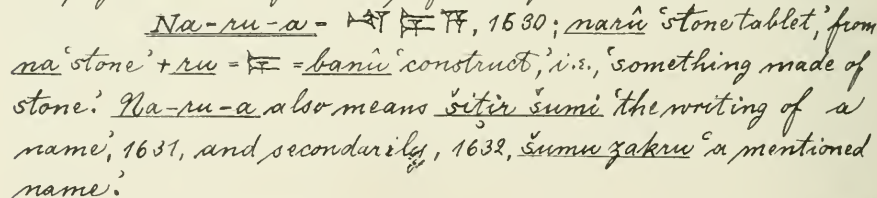 Na-ru-a - 𒈾 𒆕 𒀀, 1630; narû 'stone tablet,' from
na 'stone' + ru = 𒆕 = banû 'construct,' i.e., 'something made of
stone.' Na-ru-a also means šiṭir šumi 'the writing of a
name,' 1631, and secondarily, 1632, šumu zakru 'a mentioned
name.'